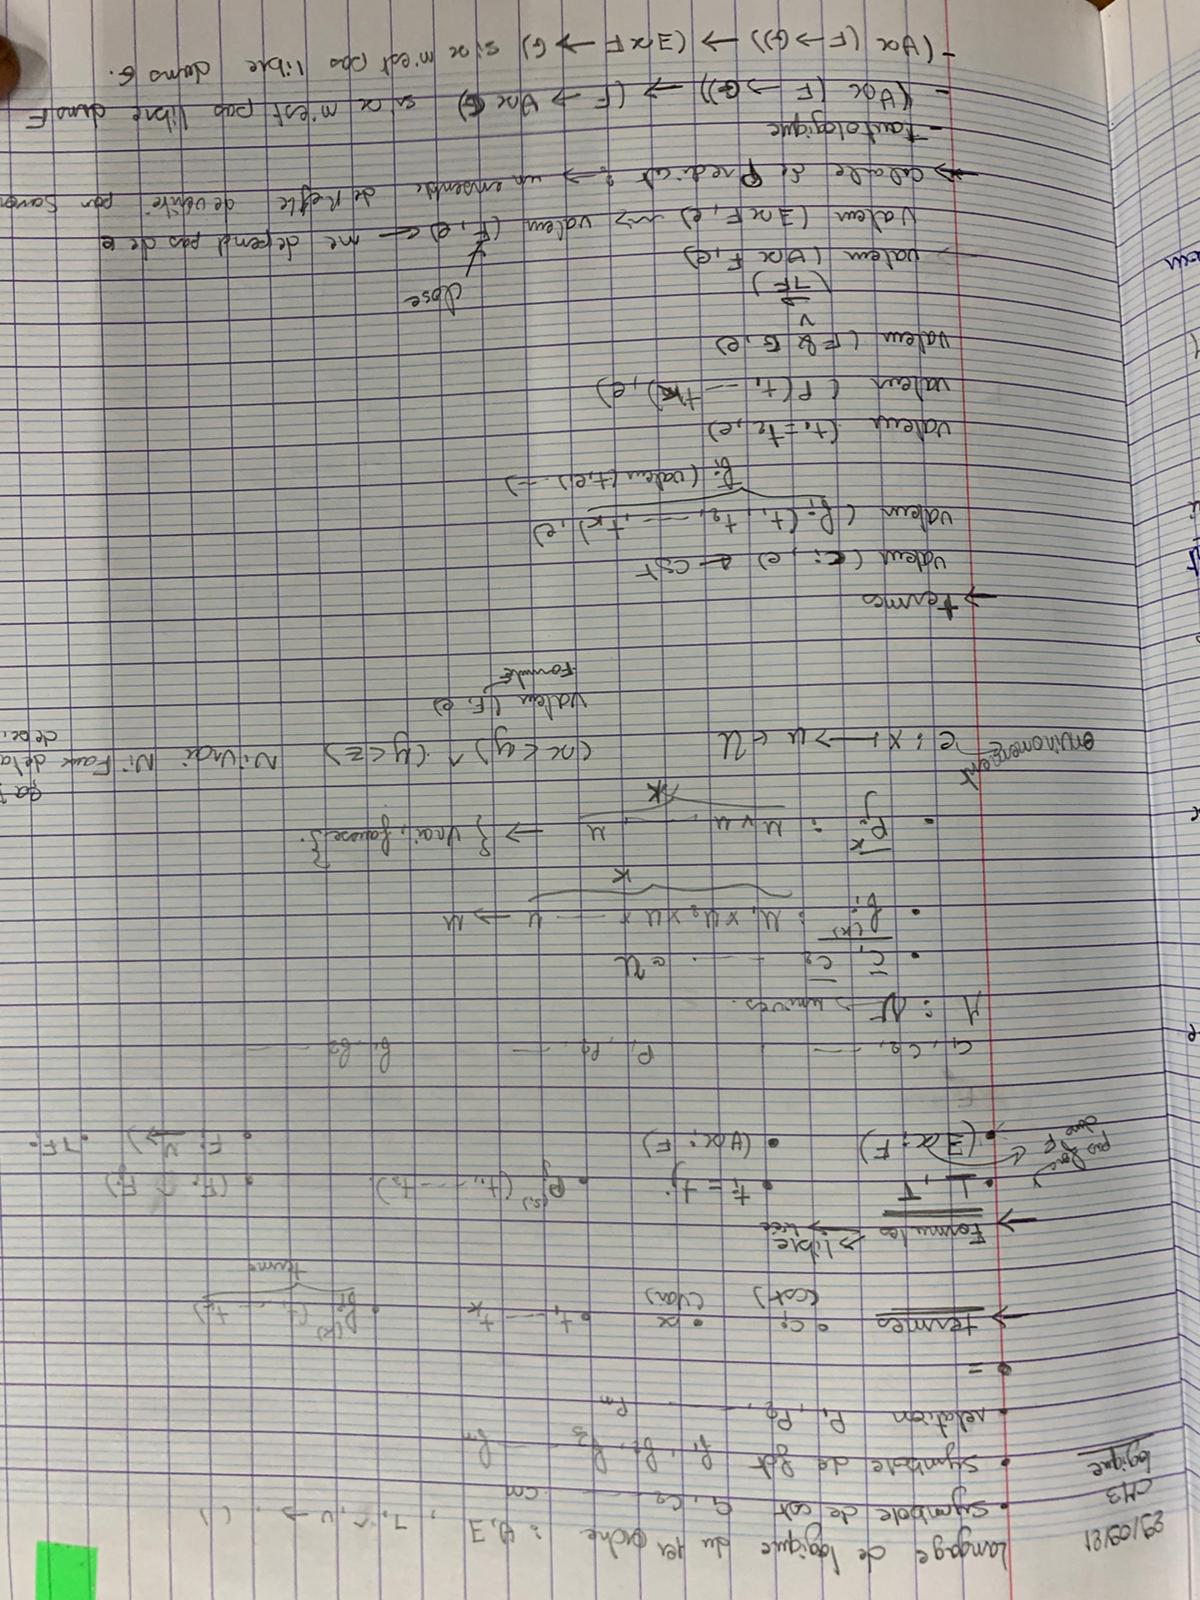 29/09/21
CM3
logique
Langage de logique du 1er ordre : ∀, ∃, ¬, ∧, ∨, →, ( )
• Symbole de cst c₁, c₂ ---- cm
• Symbole de fct f₁, f₂, f₃ ---- fn
• relation P₁, P₂, ---- Pm
• =
→ termes • ci (cst) • x (Var) • t₁ ---- tk • fi(k) (t₁ ---- tk) terme
→ Formules → libre → liée
• ⊥, T • ti = tj • Pj(s) (t₁, ---- ts) • (Fi ∧ Fj)
• (∃x: F) • (∀x: F) • Fi ∨ → • ¬F
C₁, C₂, ---- P₁, P₂, ---- f₁, f₂ ----
→ univers.
• c̄₁ c̄₂ ---- ∈ U
• fi(k) : U₁ × U₂ × U × --- U → U
k
• Pj : U × U ---- U → { Vrai, fausse}.
k
environnement e : x ↦ u ∈ U (x < y) ∧ (y < z) Ni Vrai Ni Faux
valeur (F, e)
Formule
→ termes
valeur (ci, e) ← cst
valeur (fi (t₁, t₂, ----, tk), e)
fi (valeur (t, e) --)
valeur (t₁ = t₂, e)
valeur (P(t₁, --- tk), e)
valeur (F & G, e)
∨
→
(¬F)
close
valeur (∀x F, e)
valeur (∃x F, e) ⇝ valeur (F, e) ← ne depend pas de e
→ calcule de Predicat : → un ensemble de Regle de verité
- tautologique
- (∀x (F → G)) → (F → ∀x G) si x n'est pas libre dans F
- (∀x (F → G)) → (∃x F → G) si x n'est pas libre dans G.